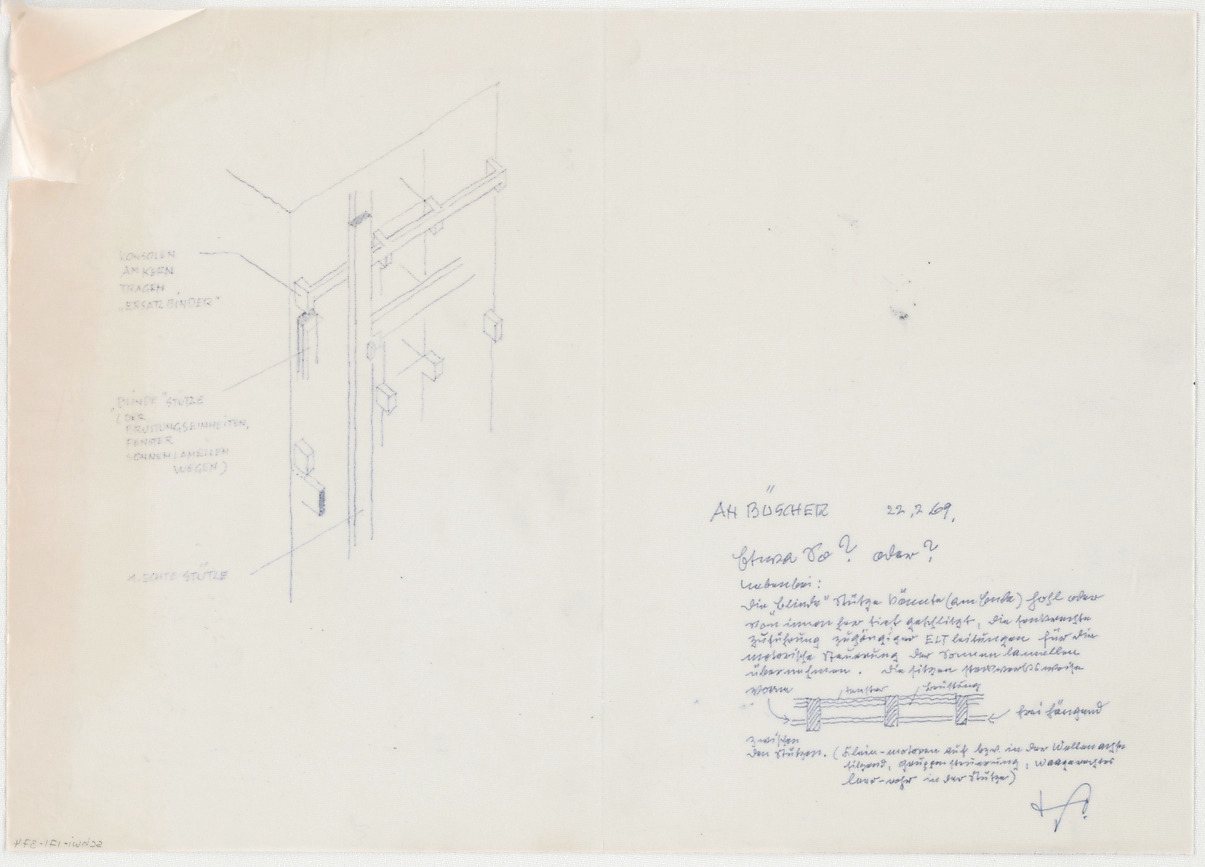 KONSOLEN
AM KERN
TRAGEN
„ERSATZBINDER"
"BLINDE" STÜTZE
(DER
BRÜSTUNGSEINHEITEN,
FENSTER
SONNENLAMELLEN
WEGEN)
1. ECHTE STÜTZE
AN BÜSCHER 22.2.69.
Etwa so? oder?
Nebenbei:
die „blinde" Stütze könnte (am Ende) hohl oder
von innen her tief geschlitzt, die senkrechte
zuführung zugängiger ELT leitungen für die
motorische Steuerung der Sonnenlamellen
übernehmen. die sitzen stockwerksweise
vorne fenster brüstung
frei hängend
zwischen
den Stützen. (Klein-motoren auf bzw. in der Wellenachse
sitzend, gruppensteuerung, waagerechtes
leer-rohr in der Stütze)